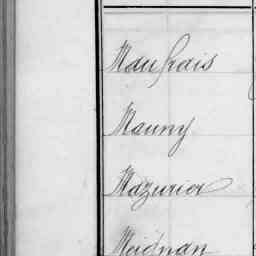 Maufrais
Mauny
Mazurier
Meignan